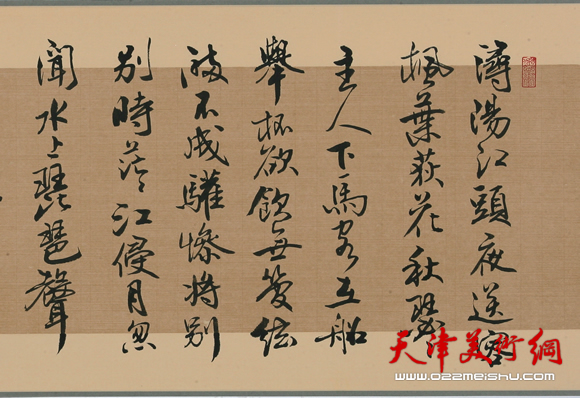 潯陽江頭夜送客
楓葉荻花秋瑟
主人下馬客在船
舉杯欲飲無管絃
醉不成驩慘將別
別時茫々江浸月忽
聞水上琵琶聲
天津美術網
www.022meishu.com